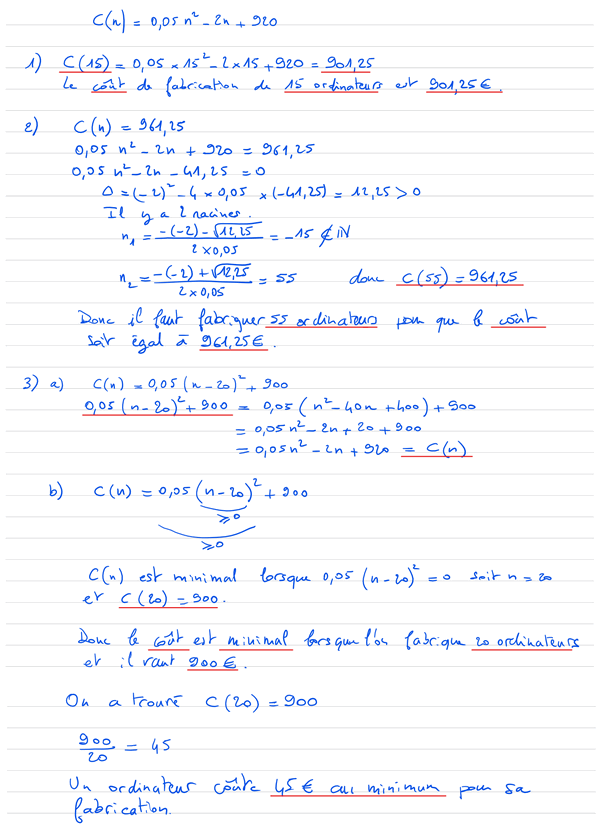 C(n) = 0,05 n² - 2n + 920
1) C(15) = 0,05 × 15² - 2 × 15 + 920 = 901,25
Le coût de fabrication de 15 ordinateurs est 901,25 €.
2) C(n) = 961,25
0,05 n² - 2n + 920 = 961,25
0,05 n² - 2n - 41,25 = 0
Δ = (-2)² - 4 × 0,05 × (-41,25) = 12,25 > 0
Il y a 2 racines.
n₁ = (-(-2) - √12,25) / (2 × 0,05) = -15 ∉ ℕ
n₂ = (-(-2) + √12,25) / (2 × 0,05) = 55 donc C(55) = 961,25
Donc il faut fabriquer 55 ordinateurs pour que le coût
soit égal à 961,25 €.
3) a) C(n) = 0,05 (n - 20)² + 900
0,05 (n - 20)² + 900 = 0,05 (n² - 40n + 400) + 900
= 0,05 n² - 2n + 20 + 900
= 0,05 n² - 2n + 920 = C(n)
b) C(n) = 0,05 (n - 20)² + 900
≥ 0
≥ 0
C(n) est minimal lorsque 0,05 (n - 20)² = 0 soit n = 20
et C(20) = 900.
Donc le coût est minimal lorsque l'on fabrique 20 ordinateurs
et il vaut 900 €.
On a trouvé C(20) = 900
900/20 = 45
Un ordinateur coûte 45 € au minimum pour sa
fabrication.